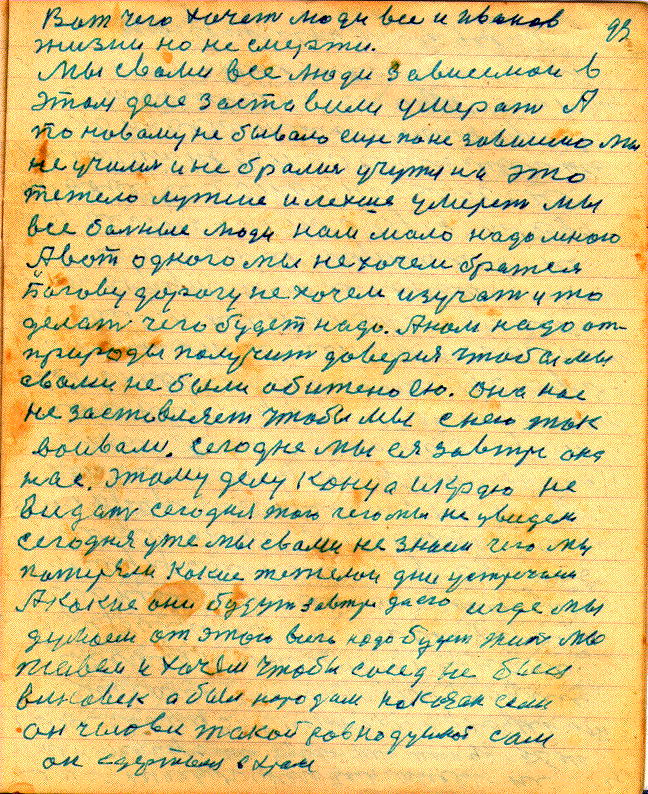 Вот чего хочет люди все и иванов 93
жизни но не смерти.
Мы свами все люди зависемои в
этом деле заставили умерат А
по новому не бывало еще по не зависемо мы
не училися и не бралися учутся на это
тежело лутше и лехше умерет мы
все бальные люди нам мало надо много
А вот одного мы не хочем братся
Богову дорогу не хочем изучат и то
делат чего будет надо. А нам надо от
природы получит доверия чтобы мы
свами не были обитено ею. она нас
не заставляет чтобы мы снею так
воивали. сегодне мы ея завтре она
нас. этому делу конца икраю не
видат сегодня того чего мы не увидем
сегодня уже мы свами не знаем чего мы
потеряли какие тежелои дни устречали
А какие они будут завтре для его игде мы
думаем от этого всего надо будет жит мы
живем и хочем чтобы сосед не был
виновек а был народам наказан сам
он челове такой равнодушной сам
он